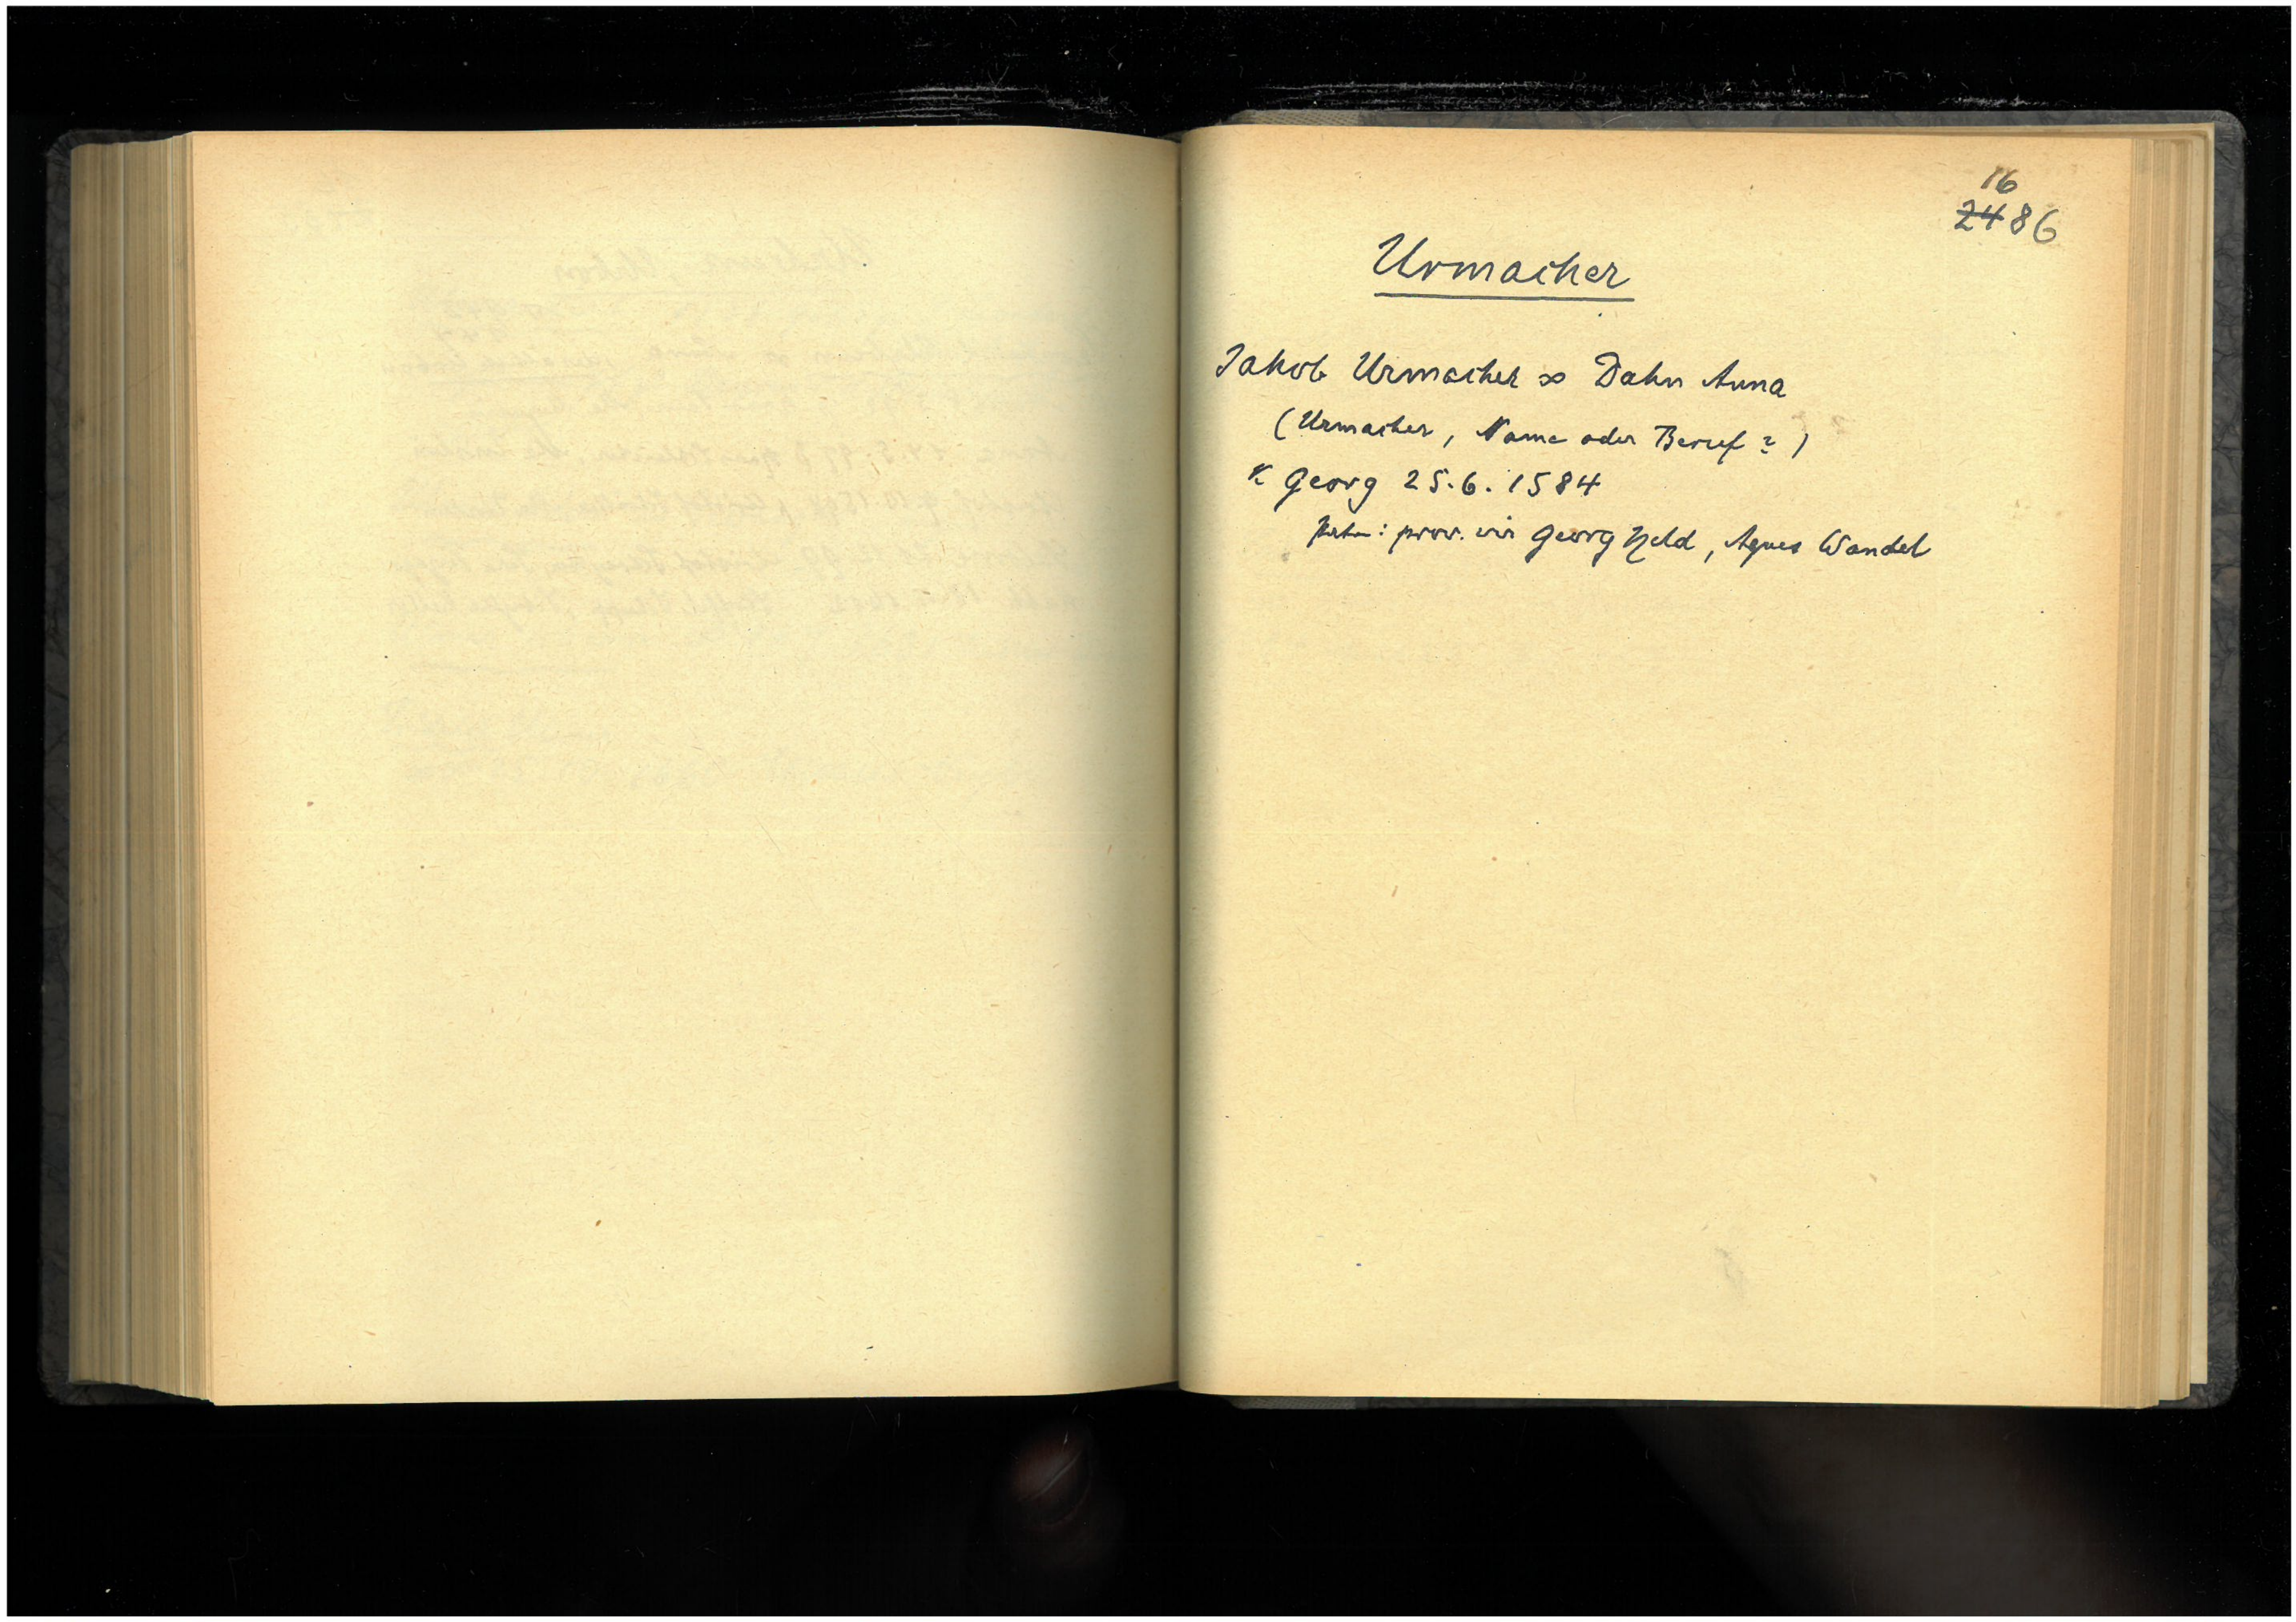 16
2486
Urmacher
Jakob Urmacher ∞ Dahn Anna
(Urmacher, Name oder Beruf?)
K Georg 25.6.1584
Patr: prov. vir Georg Held, Agnes Wandel